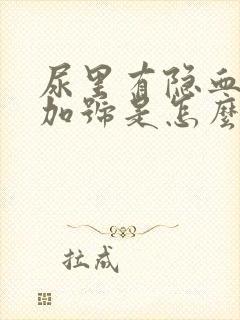 尿里有隐血
加号是怎麼
拉成